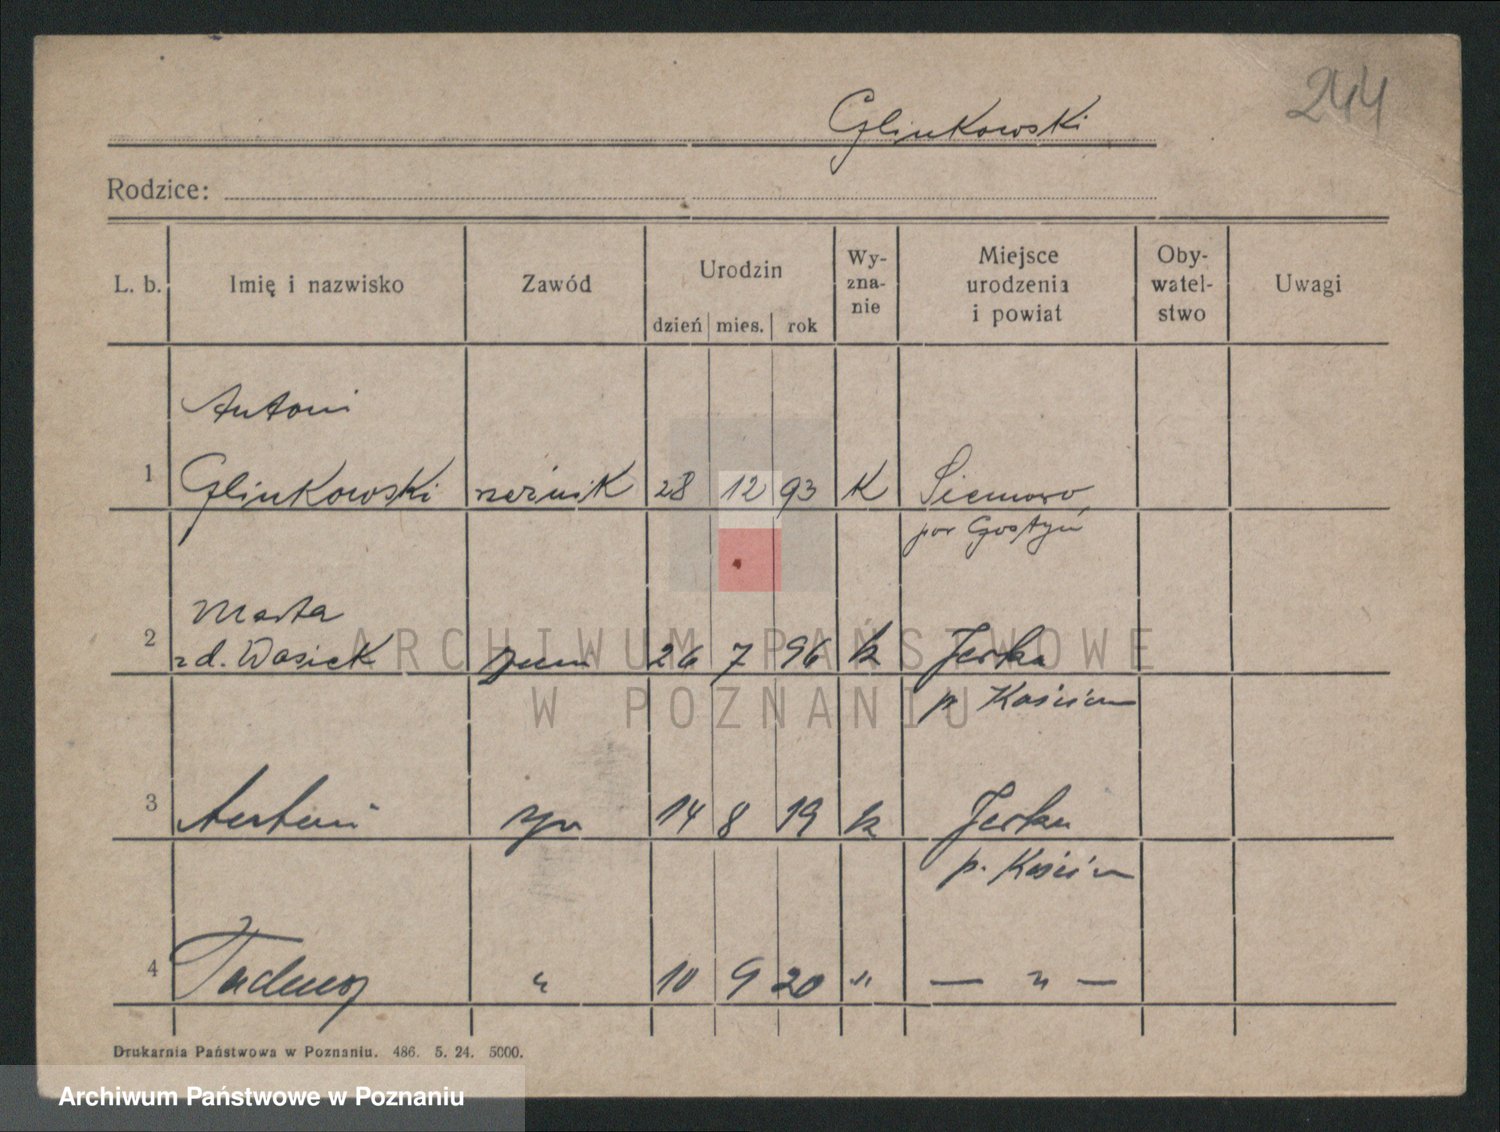 244
Glinkowski
Rodzice:
L. b. Imię i nazwisko Zawód Urodzin dzień mies. rok Wy-zna-nie Miejsce urodzenia i powiat Oby-watel-stwo Uwagi
Antoni
1 Glinkowski rzeźnik 28 12 93 K Siemowo
pow Gostyń
Marta
2 z d. Wasiek 26 7 96 k Jerka
p. Kościan
3 Antoni syn 14 8 19 k Jerka
p. Kościan
4 Tadeusz " 10 9 20 " — " —
Drukarnia Państwowa w Poznaniu. 486. 5. 24. 5000.
ARCHIWUM PAŃSTWOWE
W POZNANIU
Archiwum Państwowe w Poznaniu